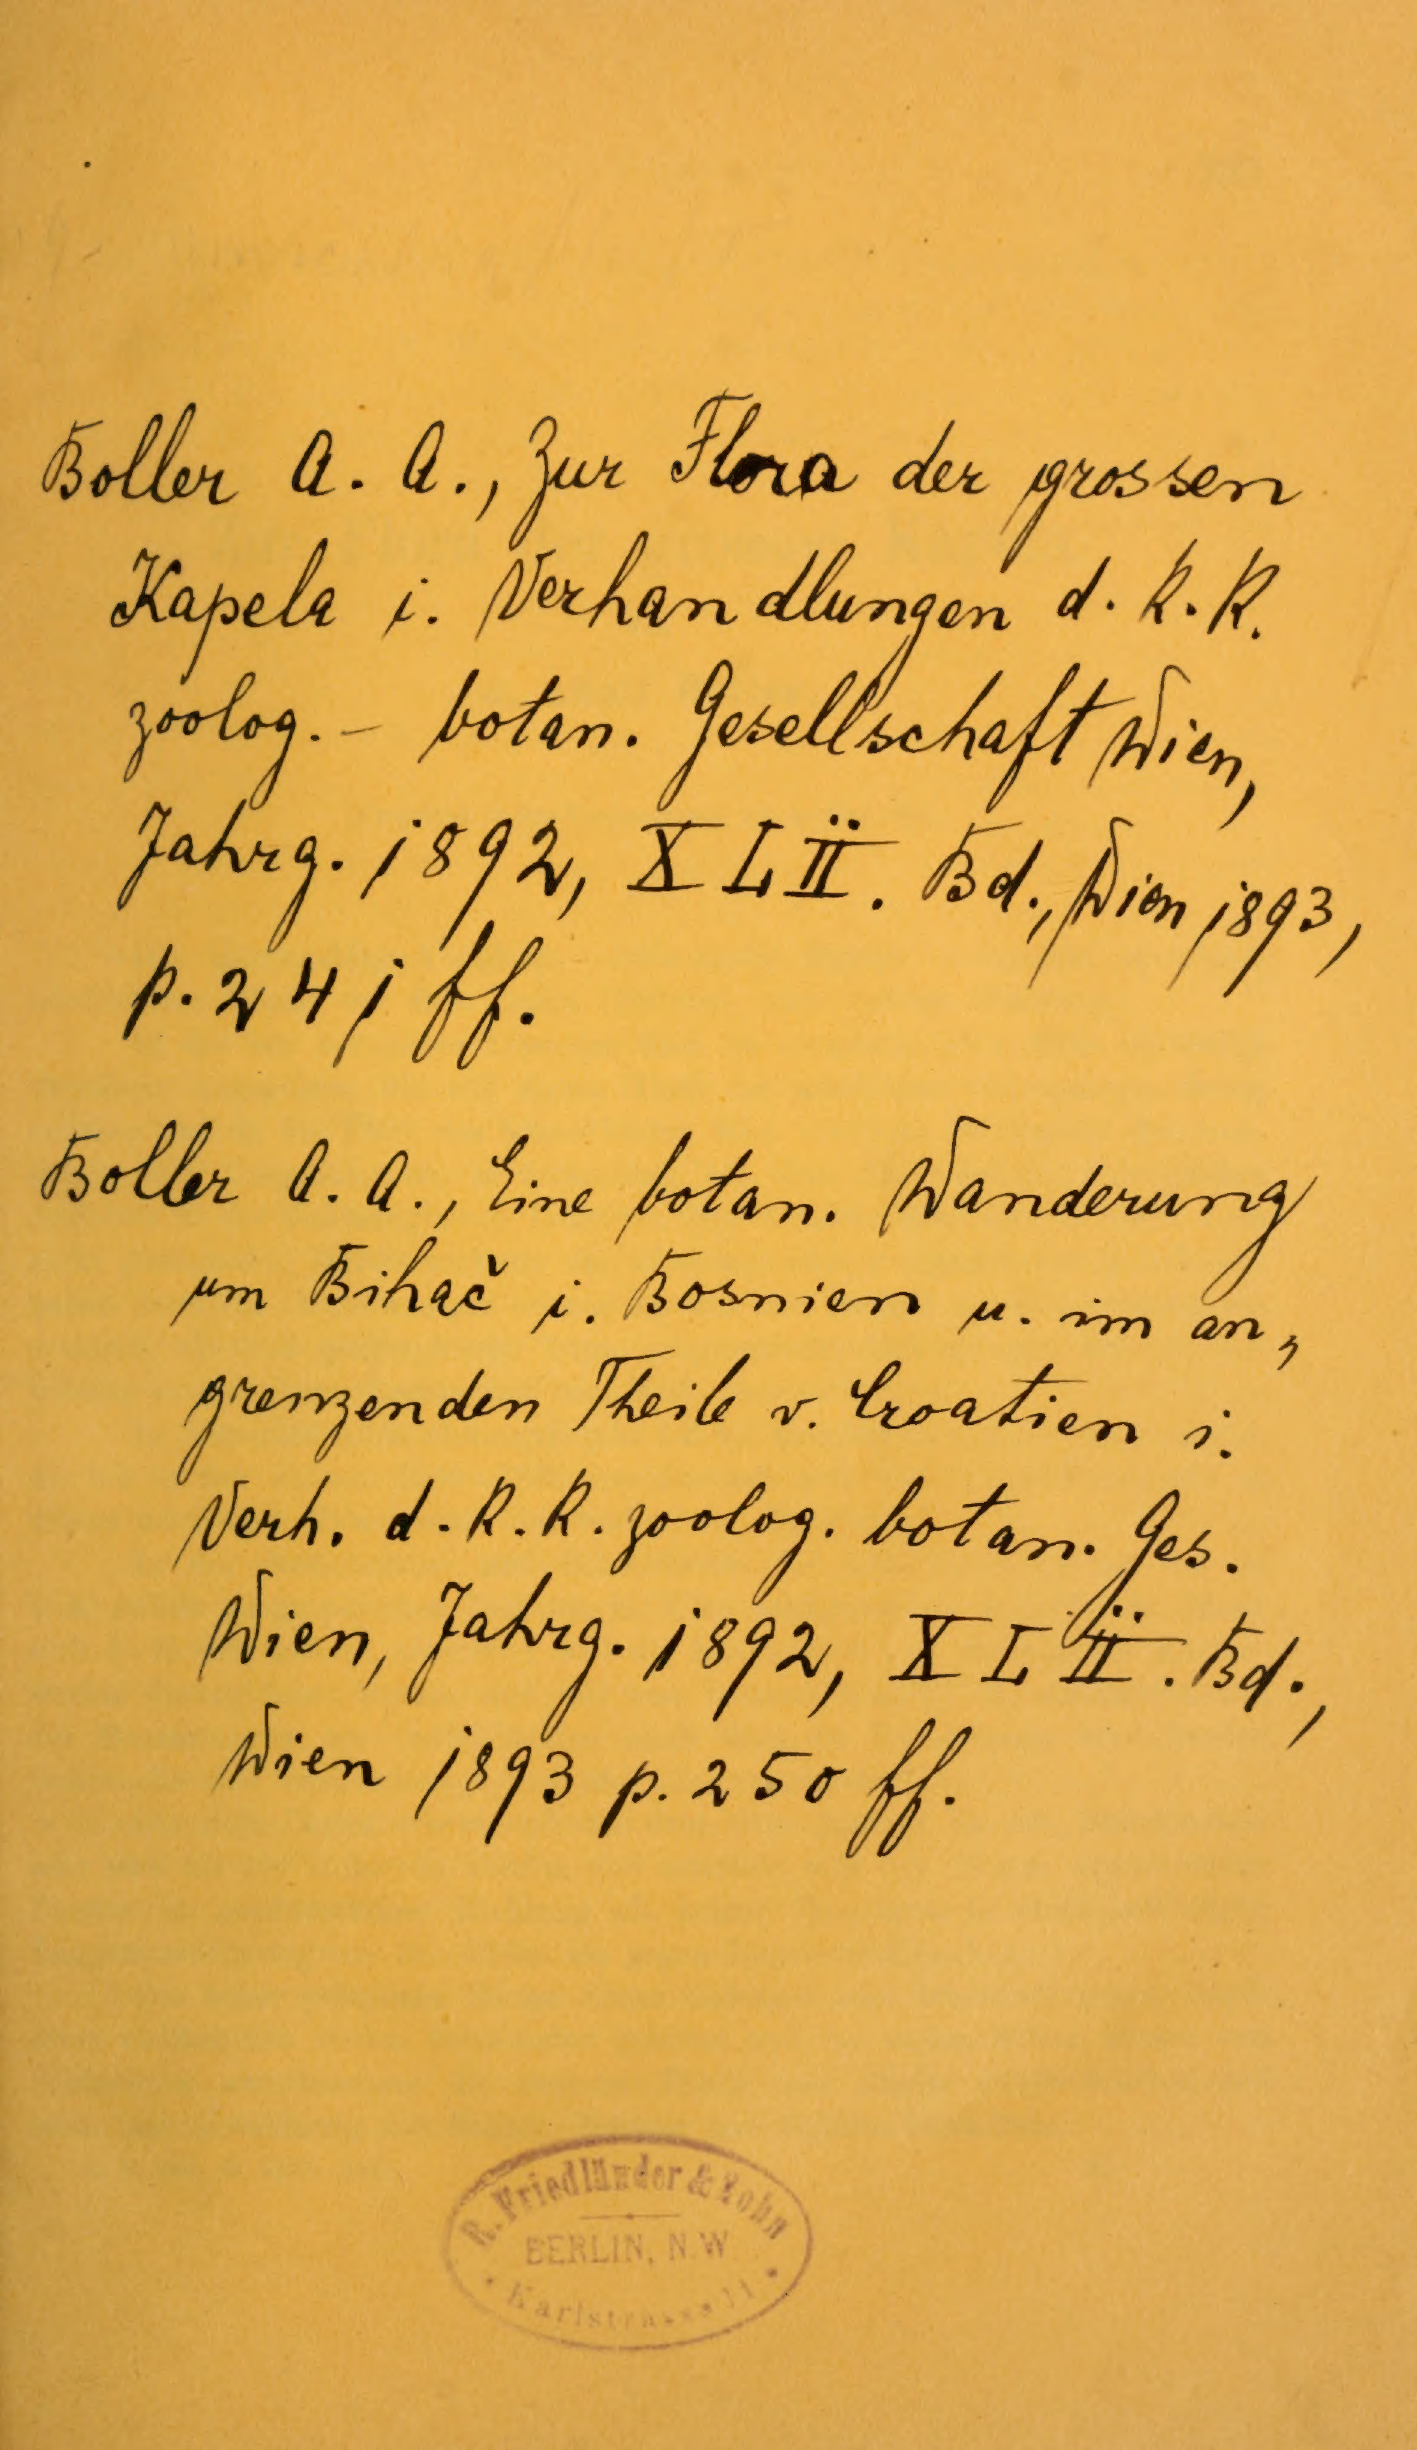 Boller A. A., Zur Flora der grossen
Kapela i. Verhandlungen d. k. k.
zoolog. - botan. Gesellschaft Wien,
Jahrg. 1892, XLII. Bd., Wien 1893,
p. 241 ff.
Boller A. A., Eine botan. Wanderung
um Bihač i. Bosnien u. im an„
grenzenden Theile v. Croatien i.
Verh. d. k. k. zoolog. botan. Ges.
Wien, Jahrg. 1892, XLII. Bd.,
Wien 1893 p. 250 ff.
R. Friedländer & Sohn
BERLIN, N.W
Karlstrasse 11